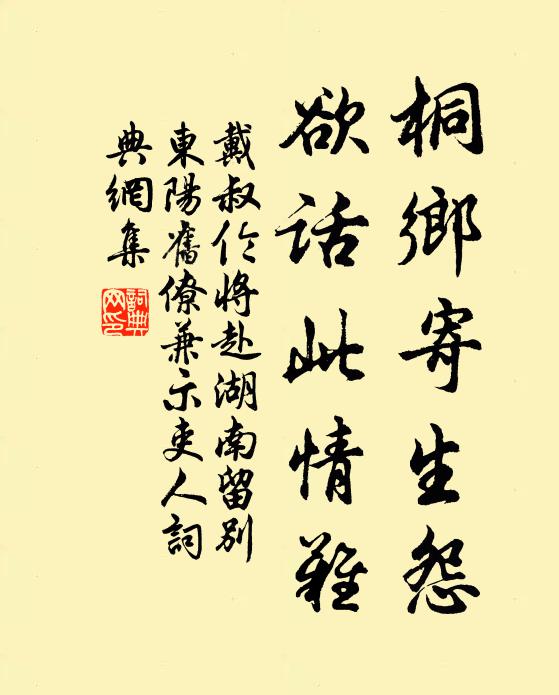 桐鄉寄生怨
欲話此情難
戴叔伦將赴湖南留別
東陽舊僚兼示吏人詞
典網集
詞典
网印